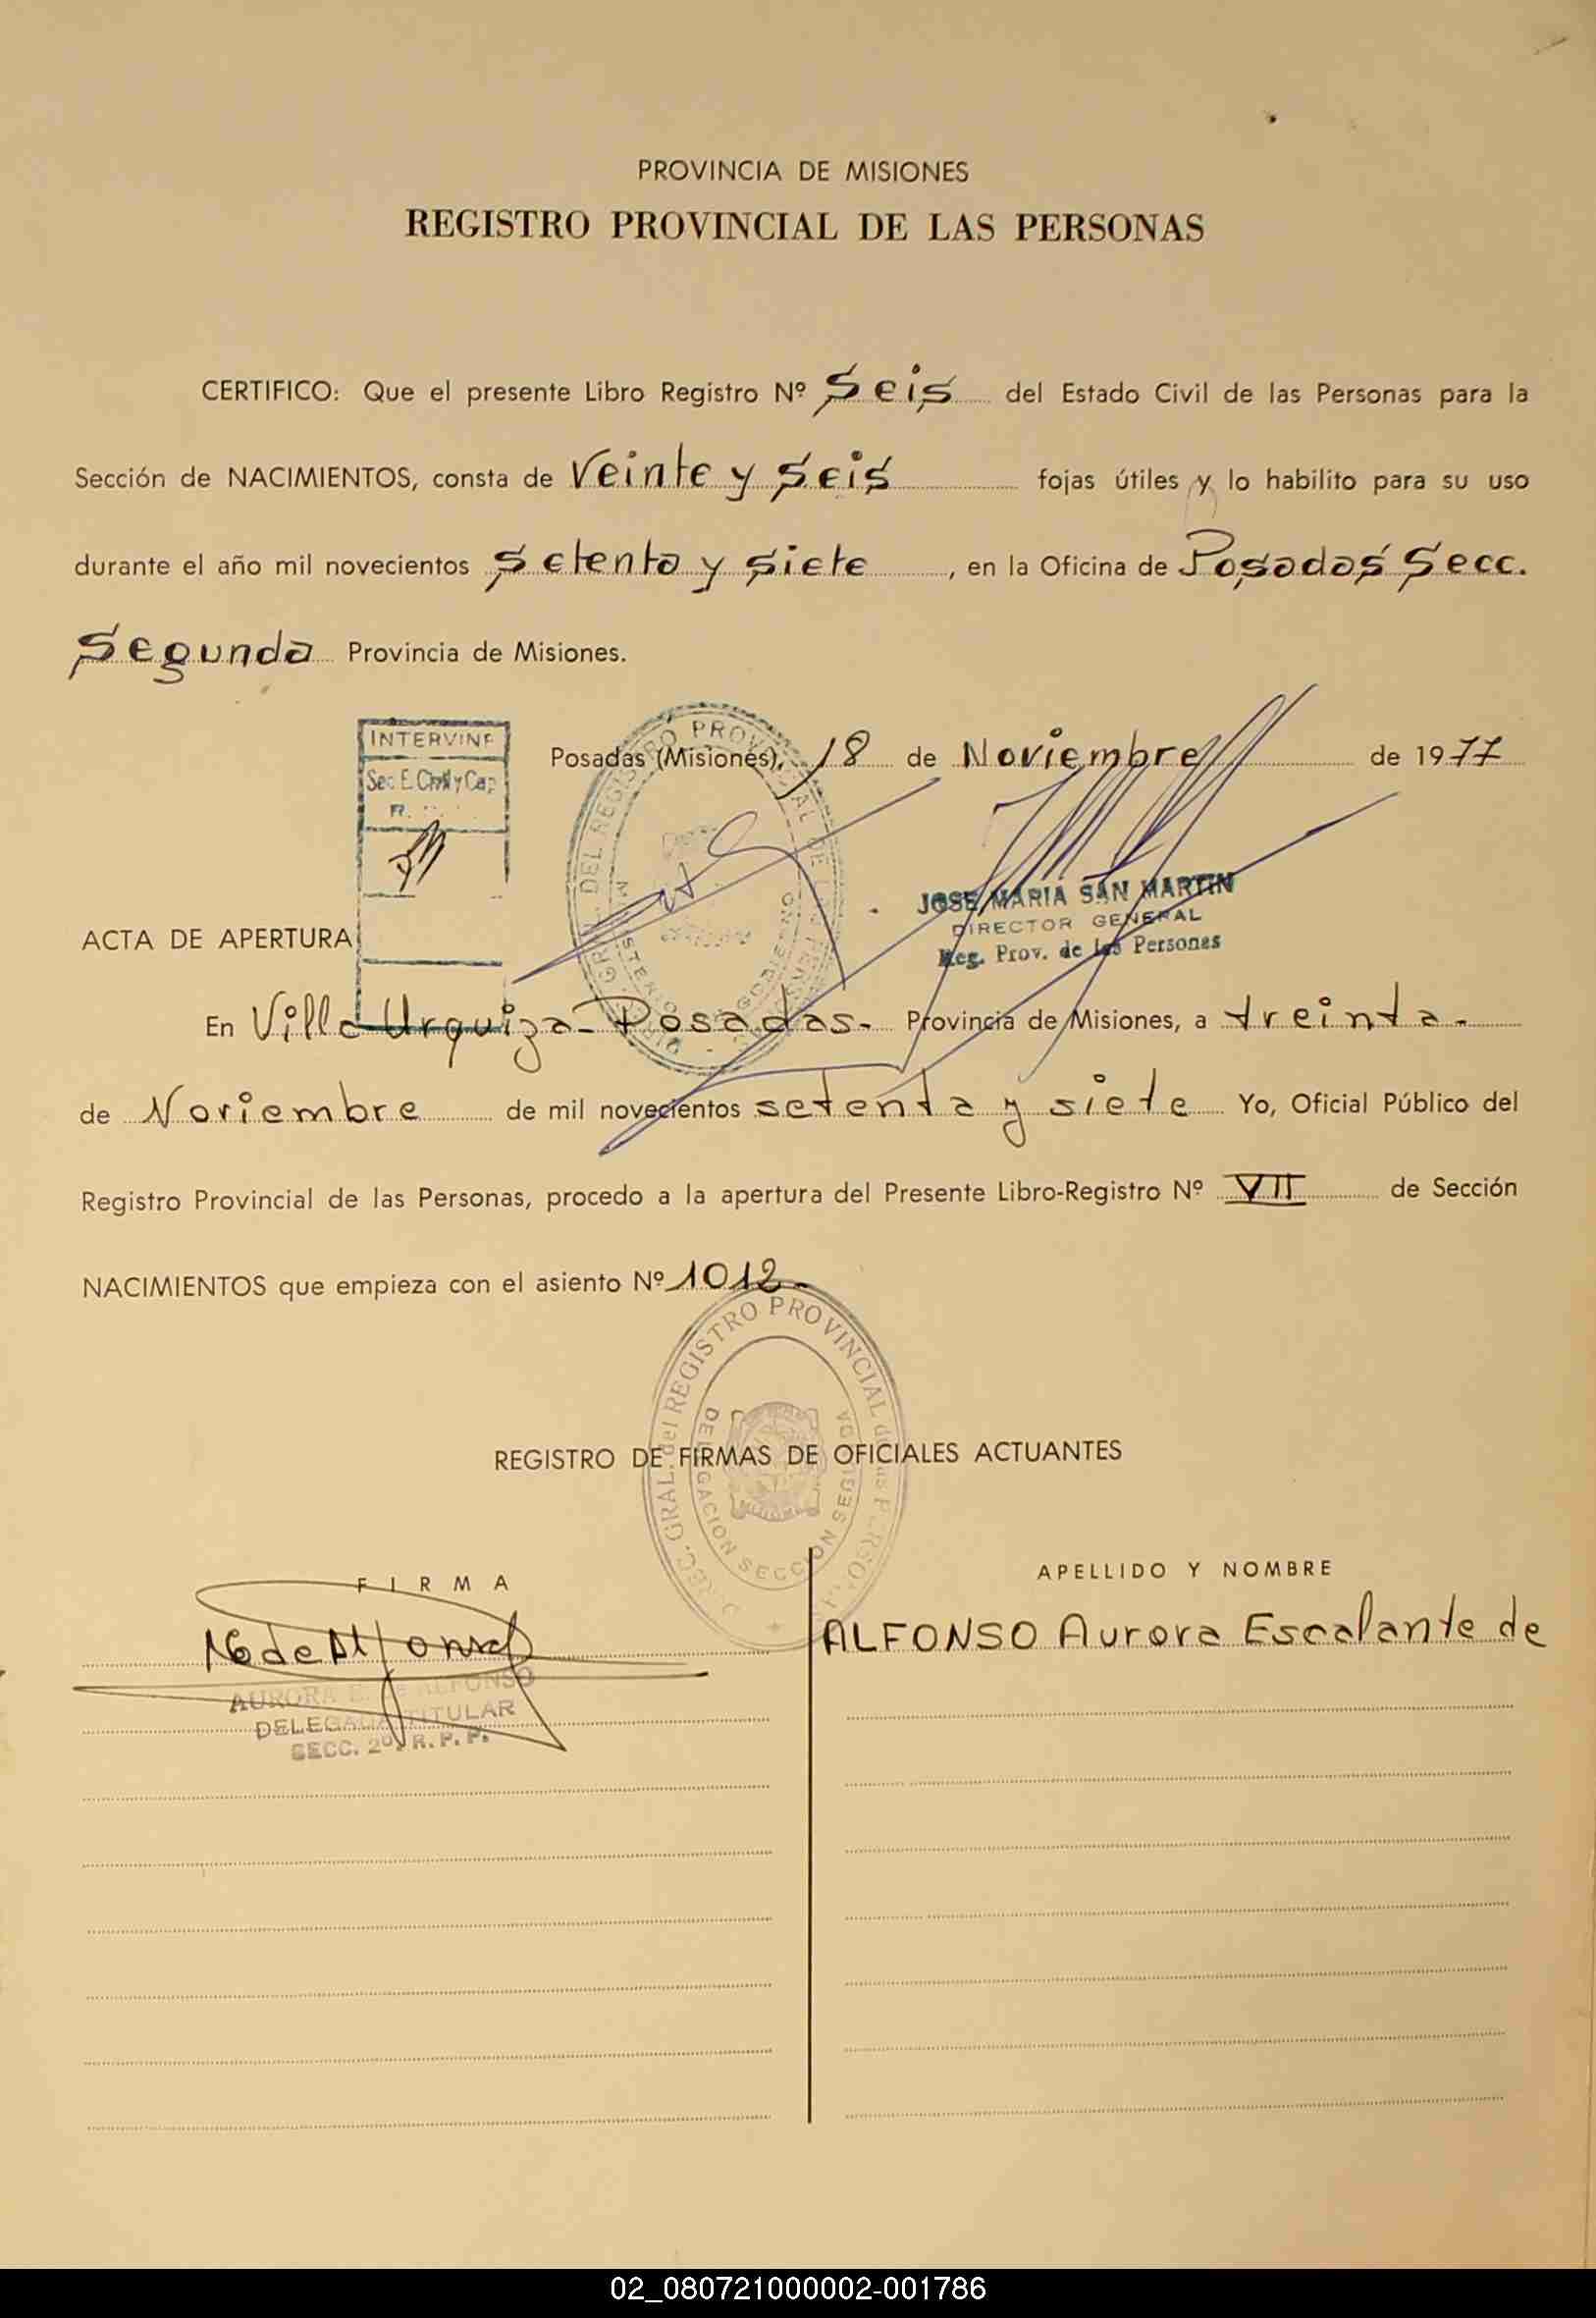 PROVINCIA DE MISIONES
REGISTRO PROVINCIAL DE LAS PERSONAS
CERTIFICO: Que el presente Libro Registro Nº Seis del Estado Civil de las Personas para la
Sección de NACIMIENTOS, consta de Veinte y Seis fojas útiles y lo habilito para su uso
durante el año mil novecientos Setenta y Siete, en la Oficina de Posadas Secc.
Segunda Provincia de Misiones.
INTERVINE
Sec. E. Civil y Cap
Posadas (Misiones), 18 de Noviembre de 1977
JOSE MARIA SAN MARTIN
DIRECTOR GENERAL
Reg. Prov. de las Personas
ACTA DE APERTURA
En Villa Urquiza - Posadas - Provincia de Misiones, a treinta -
de Noviembre de mil novecientos setenta y siete Yo, Oficial Público del
Registro Provincial de las Personas, procedo a la apertura del Presente Libro-Registro Nº VII de Sección
NACIMIENTOS que empieza con el asiento Nº 1012 -
GRAL. del REGISTRO PROVINCIAL de las PERSONAS
DELEGACION SECCION SEGUNDA
REGISTRO DE FIRMAS DE OFICIALES ACTUANTES
FIRMA
APELLIDO Y NOMBRE
de Alfonso
ALFONSO Aurora Escalante de
AURORA E. de ALFONSO
DELEGADA TITULAR
SECC. 2º R. P. P.
02_080721000002-001786